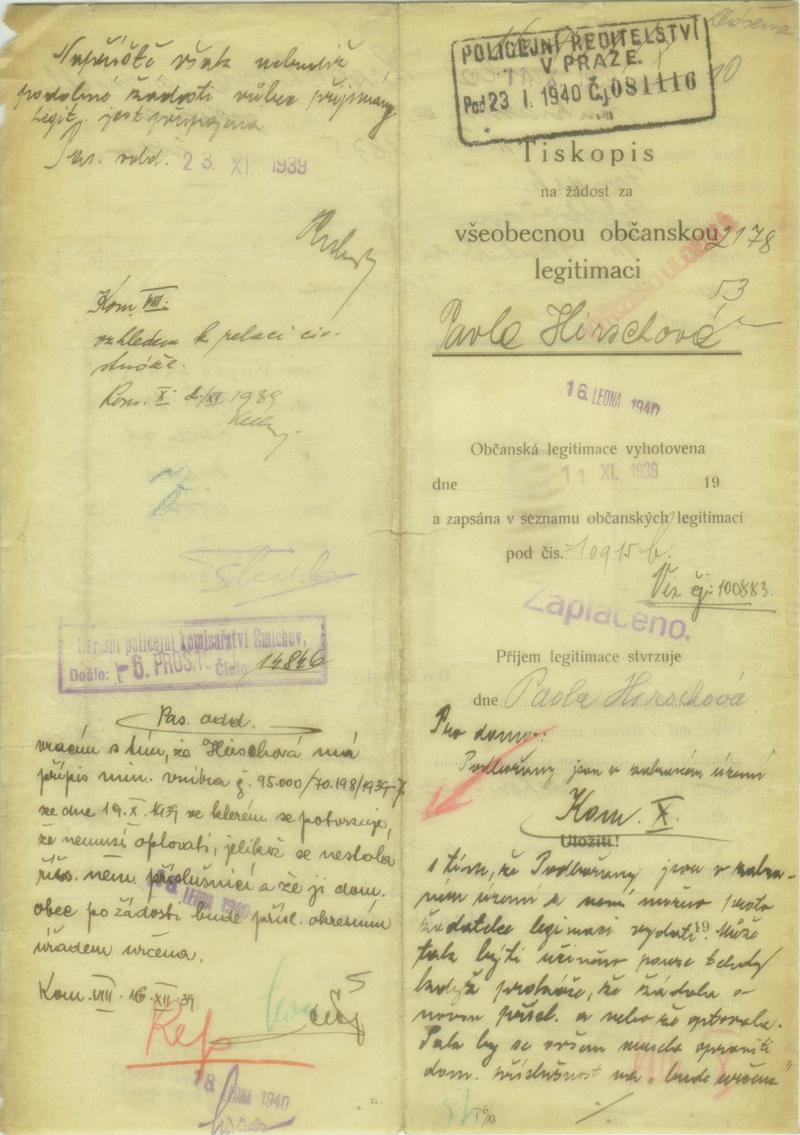 Napříště však nebudiž
podobné žádosti vůbec přijímány
Legit. jest připojena
Pas. odd. 23. XI. 1939
Kom. VIII:
vzhledem k relaci civ.
stráže.
Kom. X. 1939
Okresní policejní komisařství Smíchov,
Došlo: -6. PROS. Číslo 14846
Pas. odd.
vracím s tím, že Hirschová má
přípis min. vnitra č. 95.000/70.198/1939-7
ze dne 19. X. 1939 ve kterém se potvrzuje,
že nemusí optovati, jelikož se nestala
říš. něm. příslušnicí a že jí dom.
obec po žádosti bude přísl. okresním
úřadem určena.
Kom. VIII. 16. XII. 39
Ref
18. LEDNA 1940
POLICEJNÍ ŘEDITELSTVÍ
V PRAZE.
Pod 23 I. 1940 Čj 081116
Tiskopis
na žádost za
všeobecnou občanskou 2178
legitimaci
53
Pavla Hirschová
16. LEDNA 1940
Občanská legitimace vyhotovena
dne 11 XI. 1939 19
a zapsána v seznamu občanských legitimací
pod čis. 10915 b.
Viz čj: 100883.
Zaplaceno.
Příjem legitimace stvrzuje
dne Pavla Hirschová
Pro domo:
Podbořany jsou v zabraném území
Kom. X.
Uložiti!
s tím, že Podbořany jsou v zabra-
ném území a není možno proto
žadatelce legimaci vydati. Může
tak býti učiněno pouze tehdy
když prokáže, že žádala o
novou přísl. a nebo že optovala.
Pak by se ovšem musela opraviti
dom. příslušnost na „bude určena"